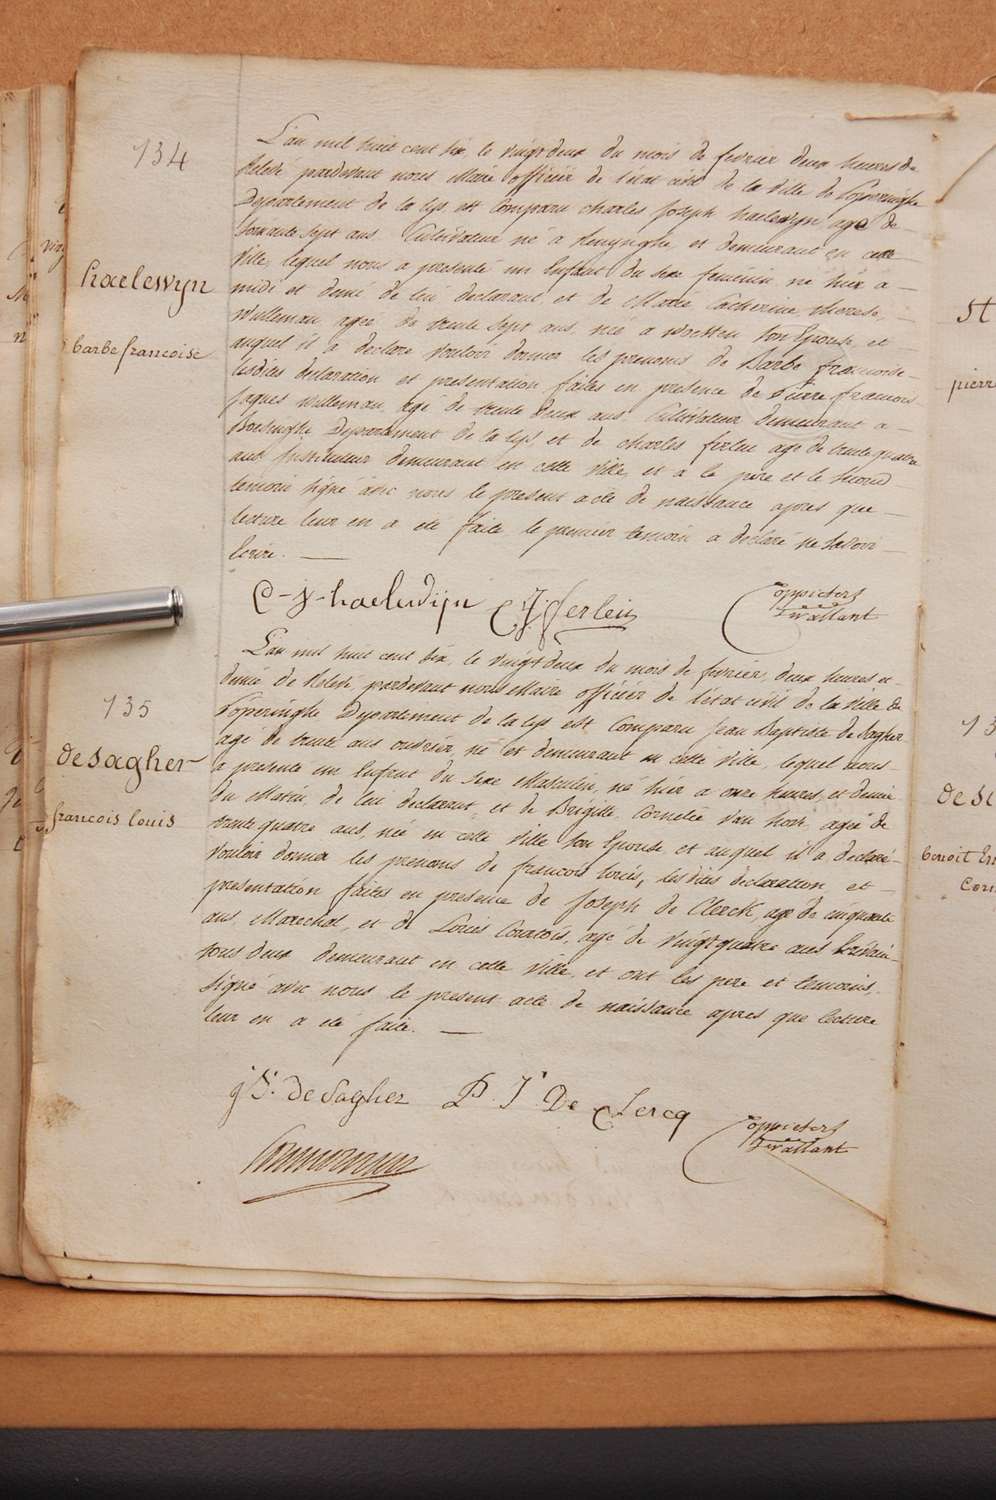 134
haelewyn
barbe francoise
L'an mil huit cent six, le vingt deux du mois de fevrier deux heures de
Relevé pardevant nous Maire officier de l'état civil de la ville de Poperinghe
Departement de la Lys, est Comparu charles Joseph haelewyn, agé de
Soixante sept ans Cultivateur né à Reninghe et demeurant en cette
Ville, lequel nous a presenté un Enfant du sexe feminin né hier à
midi et demi de lui declarant, et de Marie Catherine therese
Willeman agée de trente sept ans, née a son Epouse, et
auquel il a declaré Vouloir donner les prenoms de Barbe francoise
lesdites declaration et presentation faites en presence de Pierre francois
Jaques Willeman, agé de trente deux ans Cultivateur demeurant a
Boesinghe Departement de la Lys et de charles ferlin agé de trente quatre
ans Instituteur demeurant en cette Ville, et a le père et le second
temoin signé avec nous le present acte de naissance apres que
lecture leur en a eté faite, le premier temoin a declaré ne savoir
Ecrire.
C-J-haelewijn C J ferlein
135
de Sagher
francois Louis
L'an mil huit cent six, le vingt deux du mois de fevrier, deux heures et
demie de Relevé, pardevant nous Maire officier de l'état civil de la ville de
Poperinghe Departement de la Lys est Comparu Jean Baptiste de Sagher
agé de trente ans ouvrier, né et demeurant en cette Ville, lequel nous
a presenté un Enfant du Sexe Masculin, né hier a onze heures, et demie
du Matin, de lui declarant, et de Brigitte Cornelie Van agée de
trente quatre ans, née en cette Ville son Epouse, et auquel il a declaré
Vouloir donner les prenoms de francois Louis, lesdites declaration et
presentation faites en presence de Joseph de Clerck, agé de cinquante
ans, Marechal, et de Louis Courtois, agé de vingt quatre ans
tous deux demeurant en cette Ville, et ont les pere et temoins,
signé avec nous le present acte de naissance apres que lecture
leur en a eté faite.
de Sagher P. J. De Clercq
St
pierr
13